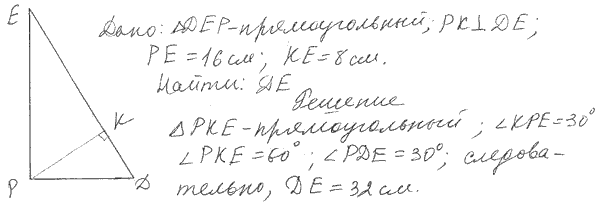 E
Дано: ΔDEP-прямоугольный; PK⊥DE;
PE=16см; KE=8см.
Найти: DE
Решение
K
ΔPKE-прямоугольный; ∠KPE=30°
∠PKE=60°; ∠PDE=30°; следова-
P
D
тельно, DE=32см.